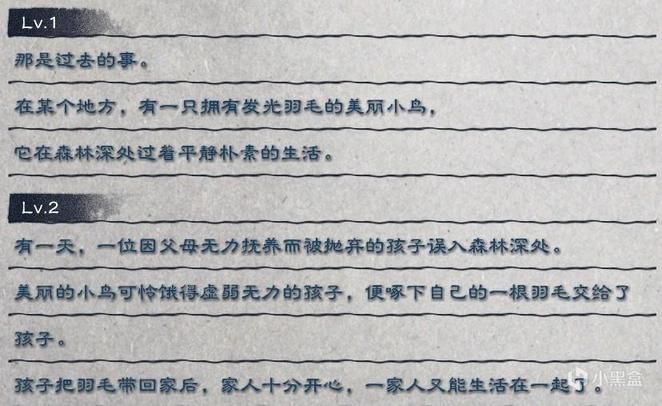 Lv.1
那是过去的事。
在某个地方，有一只拥有发光羽毛的美丽小鸟，
它在森林深处过着平静朴素的生活。
Lv.2
有一天，一位因父母无力抚养而被抛弃的孩子误入森林深处。
美丽的小鸟可怜饿得虚弱无力的孩子，便啄下自己的一根羽毛交给了
孩子。
孩子把羽毛带回家后，家人十分开心，一家人又能生活在一起了。
小黑盒